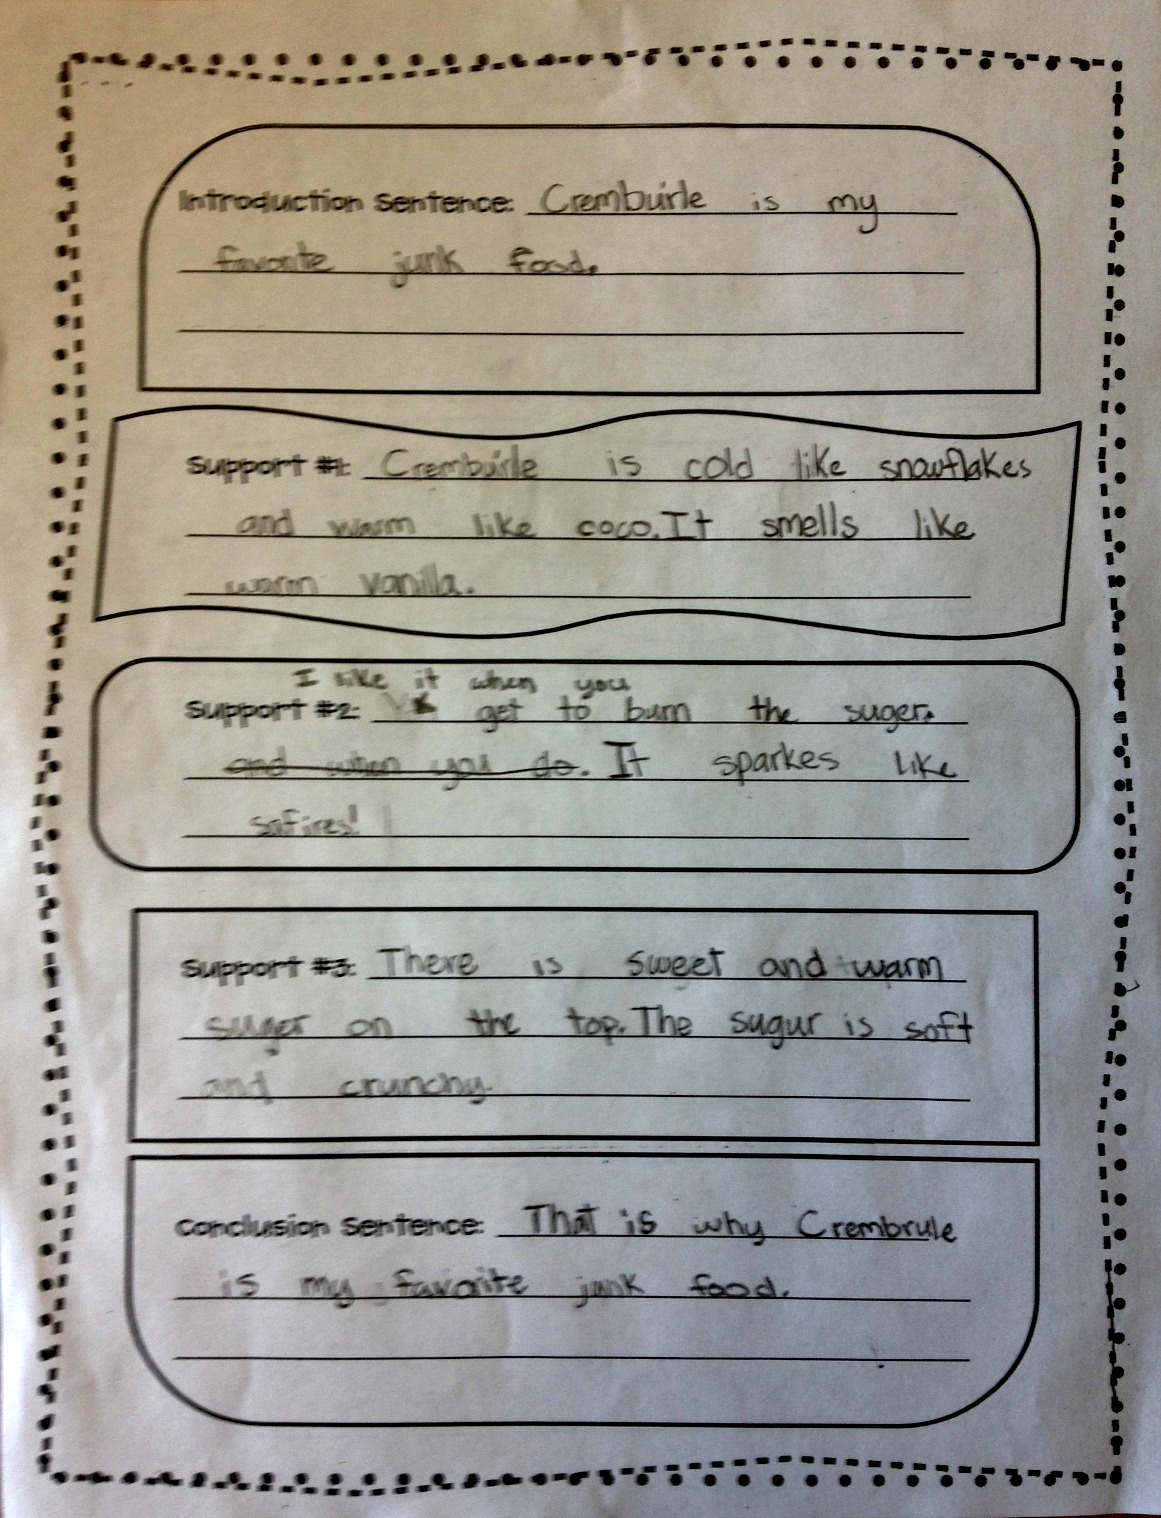 Introduction Sentence: Crembuirle is my
favorite junk food.
Support #1: Crembuirle is cold like snowflakes
and warm like coco. It smells like
warm vanilla.
I like it when you
Support #2: get to burn the suger.
and when you do. It sparkes like
safires!
Support #3: There is sweet and warm
suger on the top. The sugur is soft
and crunchy.
Conclusion Sentence: That is why Crembrule
is my favorite junk food.